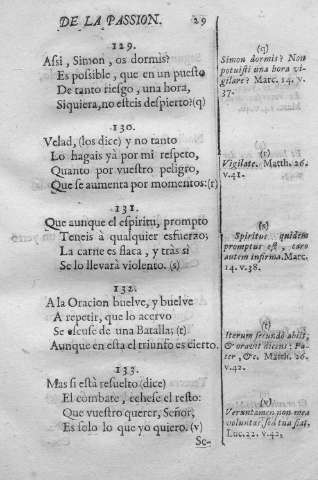 DE LA PASSION. 29
129.
Assi, Simon, os dormis?
Es possible, que en un puesto
De tanto riesgo, una hora,
Siquiera, no esteis despierto? (q)
130.
Velad, (los dice) y no tanto
Lo hagais yà por mi respeto,
Quanto por vuestro peligro,
Que se aumenta por momentos: (r)
131.
Que aunque el espiritu, prompto
Teneis à qualquier esfuerzo;
La carne es flaca, y tràs si
Se lo llevarà violento. (s)
132.
A la Oracion buelve, y buelve
A repetir, que lo acervo
Se escuse de una Batalla; (t)
Aunque en esta el triunfo es cierto.
133.
Mas si està resuelto (dice)
El combate, echese el resto:
Que vuestro querer, Señor,
Es solo lo que yo quiero. (v)
Se-
(q)
Simon dormis? Non
potuisti una hora vi-
gilare? Marc. 14. v.
37.
(r)
Vigilate. Matth. 26.
v. 41.
(s)
Spiritus quidem
promptus est, caro
autem infirma. Marc.
14. v. 38.
(t)
Iterum secundò abiit,
& oravit dicens: Pa-
ter, &c. Matth. 26.
v. 42.
(v)
Veruntamen non mea
voluntas, sed tua fiat.
Luc. 22. v. 42.